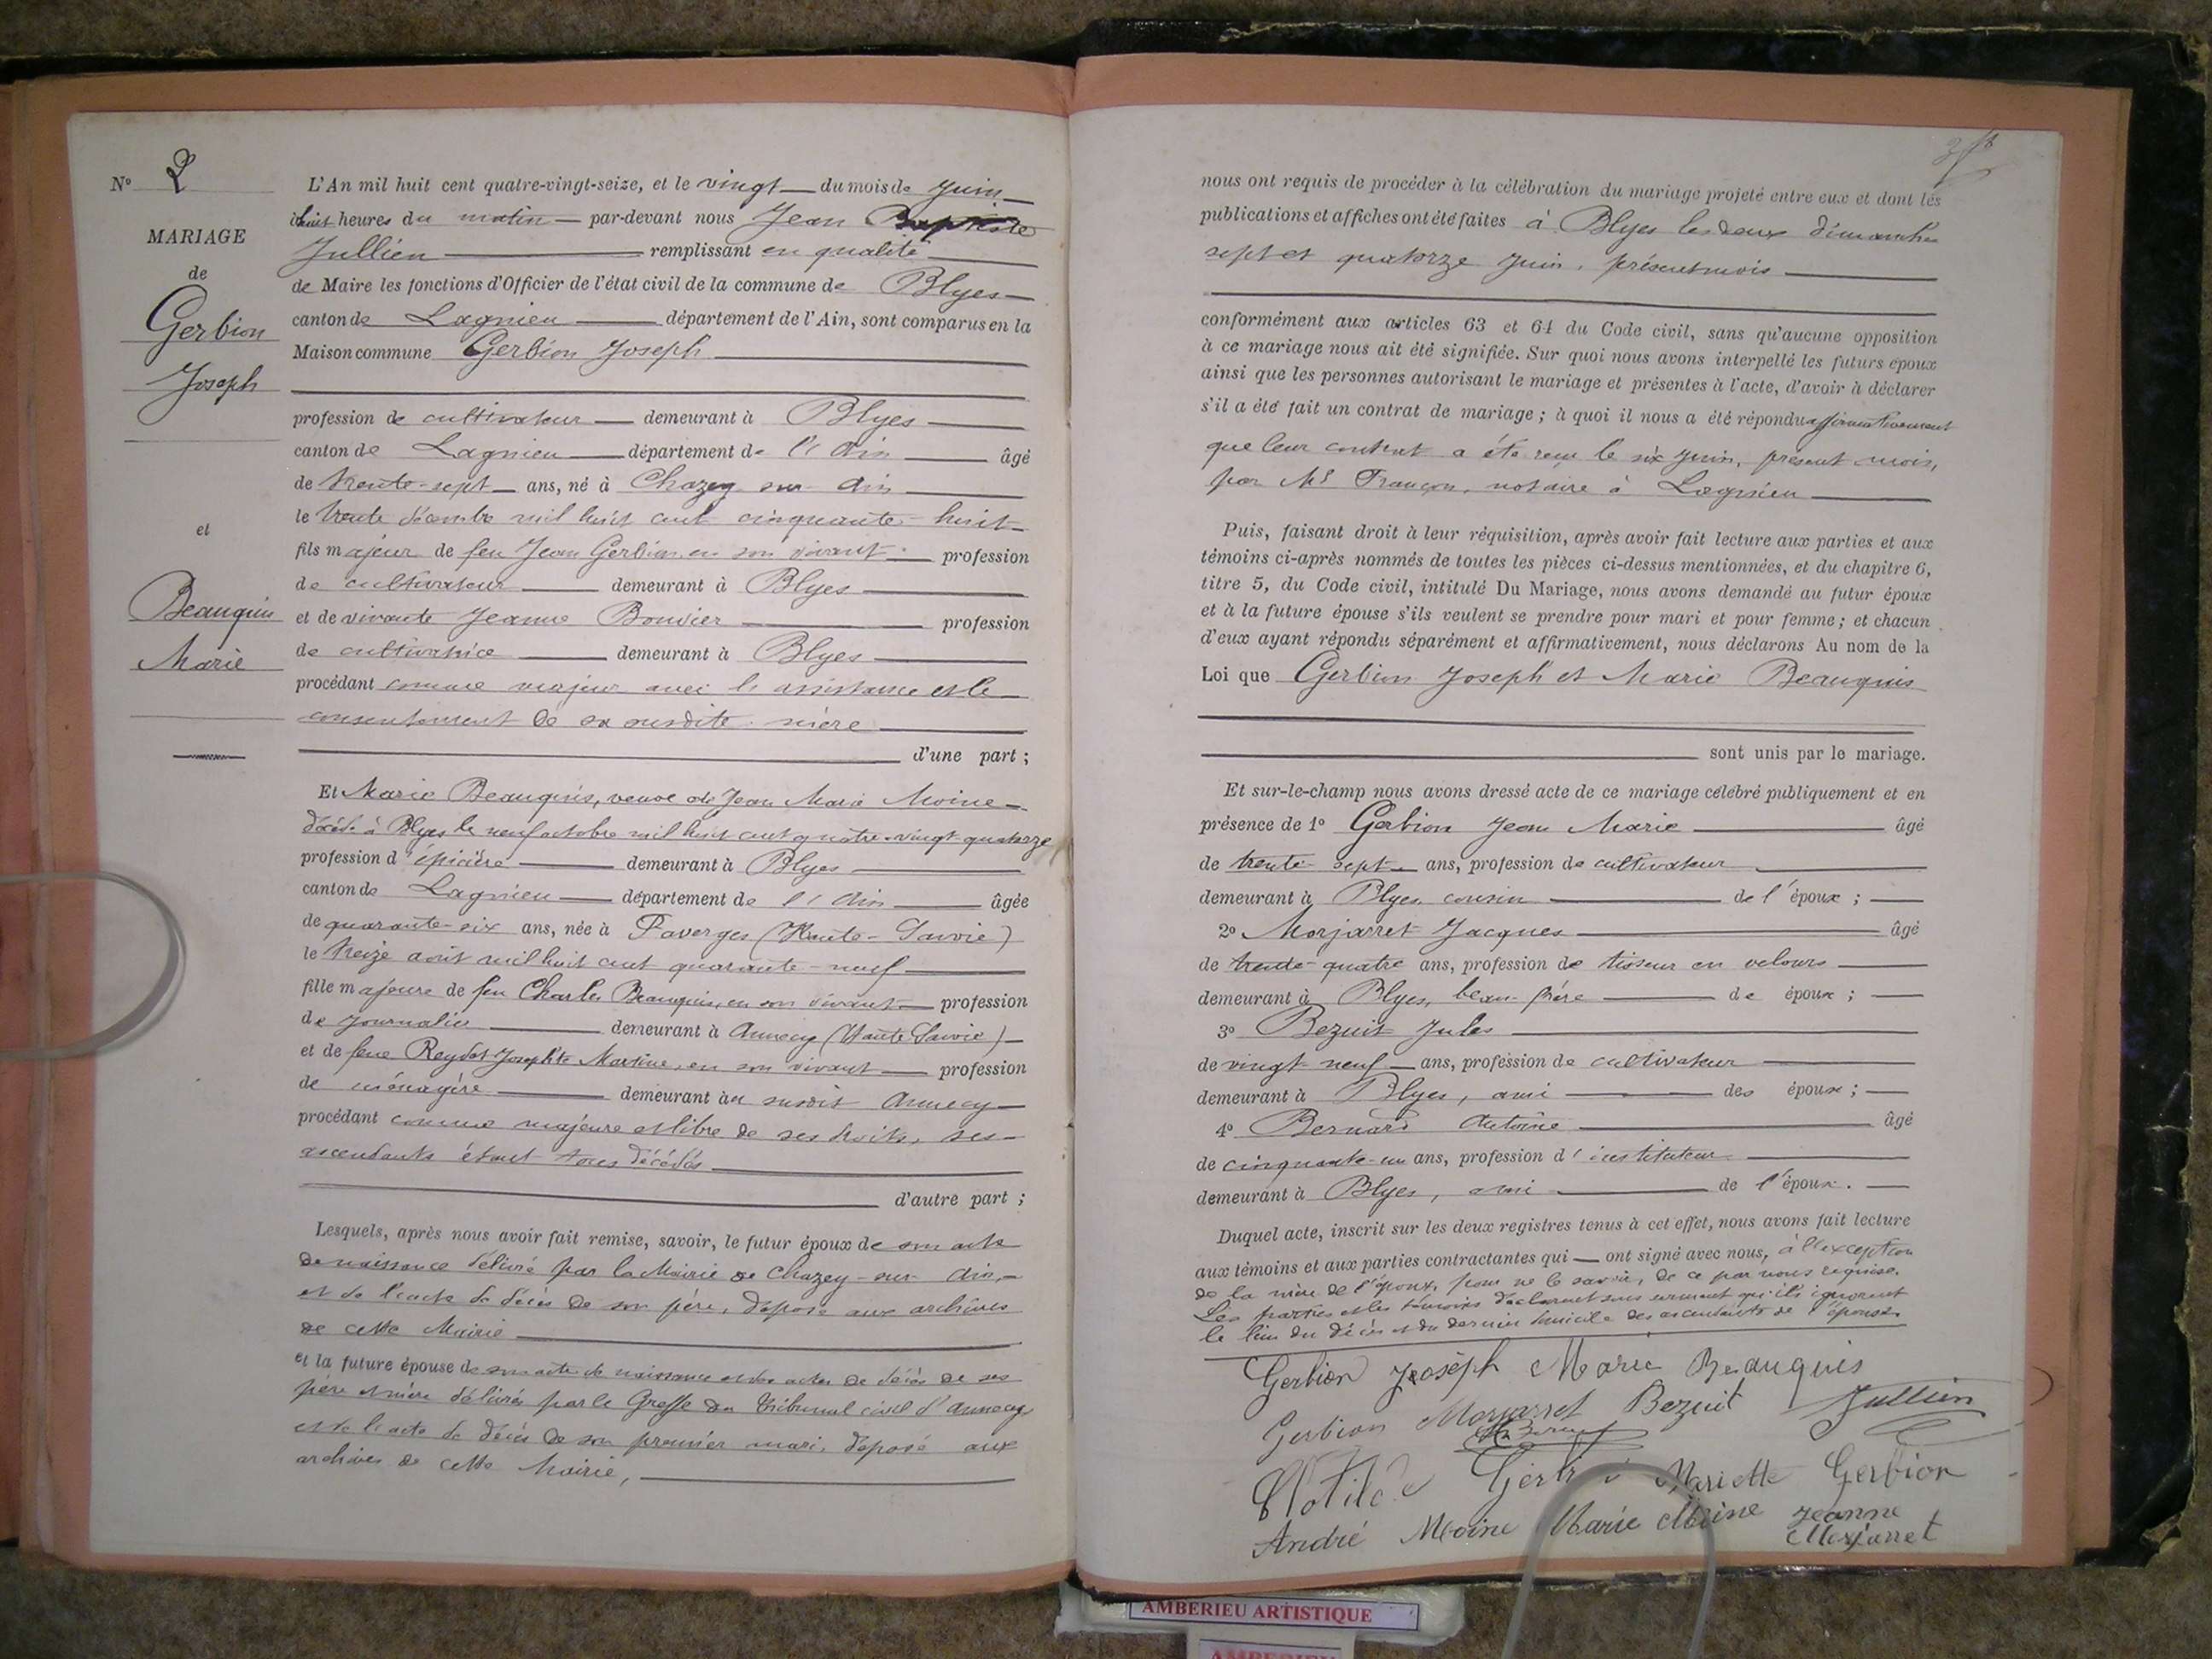 N° 2
MARIAGE
de
Gerbion
Joseph
et
Beauquis
Marie
L'An mil huit cent quatre-vingt-seize, et le vingt du mois de Juin
à huit heures du matin par-devant nous Jean Baptiste
Jullien remplissant en qualité
de Maire les fonctions d'Officier de l'état civil de la commune de Blyes
canton de Lagnieu département de l'Ain, sont comparus en la
Maison commune Gerbion Joseph
profession de cultivateur demeurant à Blyes
canton de Lagnieu département de l'Ain âgé
de trente-sept ans, né à Chazey sur Ain
le trente décembre mil huit cent cinquante-huit
fils majeur de feu Jean Gerbion, en son vivant profession
de cultivateur demeurant à Blyes
et de vivante Jeanne Bouvier profession
de cultivatrice demeurant à Blyes
procédant comme majeur avec l'assistance et le
consentement de sa susdite mère
d'une part ;
Et Marie Beauquis, veuve de Jean Marie Moine
décédé à Blyes le neuf octobre mil huit cent quatre-vingt-quatorze
profession d'épicière demeurant à Blyes
canton de Lagnieu département de l'Ain âgée
de quarante-six ans, née à Faverges (Haute-Savoie)
le treize août mil huit cent quarante-neuf
fille majeure de feu Charles Beauquis, en son vivant profession
de journalier demeurant à Annecy (Haute Savoie)
et de feue Reydet Josephte Martine, en son vivant profession
de ménagère demeurant au susdit Annecy
procédant comme majeure et libre de ses droits, ses
ascendants étant tous décédés
d'autre part ;
Lesquels, après nous avoir fait remise, savoir, le futur époux de son acte
de naissance délivré par la Mairie de Chazey-sur-Ain,
et de l'acte de décès de son père, déposé aux archives
de cette Mairie
et la future épouse de son acte de naissance et des actes de décès de ses
père et mère délivrés par le Greffe du Tribunal civil d'Annecy
et de l'acte de décès de son premier mari, déposé aux
archives de cette Mairie,
nous ont requis de procéder à la célébration du mariage projeté entre eux et dont les
publications et affiches ont été faites à Blyes les deux dimanches
sept et quatorze Juin, présent mois
conformément aux articles 63 et 64 du Code civil, sans qu'aucune opposition
à ce mariage nous ait été signifiée. Sur quoi nous avons interpellé les futurs époux
ainsi que les personnes autorisant le mariage et présentes à l'acte, d'avoir à déclarer
s'il a été fait un contrat de mariage ; à quoi il nous a été répondu affirmativement
que leur contrat a été reçu le six Juin, présent mois,
par Me Françon, notaire à Lagnieu
Puis, faisant droit à leur réquisition, après avoir fait lecture aux parties et aux
témoins ci-après nommés de toutes les pièces ci-dessus mentionnées, et du chapitre 6,
titre 5, du Code civil, intitulé Du Mariage, nous avons demandé au futur époux
et à la future épouse s'ils veulent se prendre pour mari et pour femme ; et chacun
d'eux ayant répondu séparément et affirmativement, nous déclarons Au nom de la
Loi que Gerbion Joseph et Marie Beauquis
sont unis par le mariage.
Et sur-le-champ nous avons dressé acte de ce mariage célébré publiquement et en
présence de 1° Gerbion Jean Marie âgé
de trente-sept ans, profession de cultivateur
demeurant à Blyes, cousin de l'époux ;
2° Morjarret Jacques âgé
de trente-quatre ans, profession de tisseur en velours
demeurant à Blyes, beau-frère de époux ;
3° Bezuit Jules
de vingt-neuf ans, profession de cultivateur
demeurant à Blyes, ami des époux ;
4° Bernard Antoine âgé
de cinquante-un ans, profession d'instituteur
demeurant à Blyes, ami de l'époux.
Duquel acte, inscrit sur les deux registres tenus à cet effet, nous avons fait lecture
aux témoins et aux parties contractantes qui ont signé avec nous, à l'exception
de la mère de l'époux, pour ne le savoir, de ce par nous requise.
Les parties et les témoins déclarent sous serment qu'ils ignorent
le lieu du décès et du dernier domicile des ascendants de l'épouse.
Gerbion Joseph Marie Beauquis
Gerbion Morjarret Bezuit Jullien
Clotilde Mariette Gerbion
André Moine Marie Moine Jeanne
Morjarret
AMBERIEU ARTISTIQUE
AMBERIEU